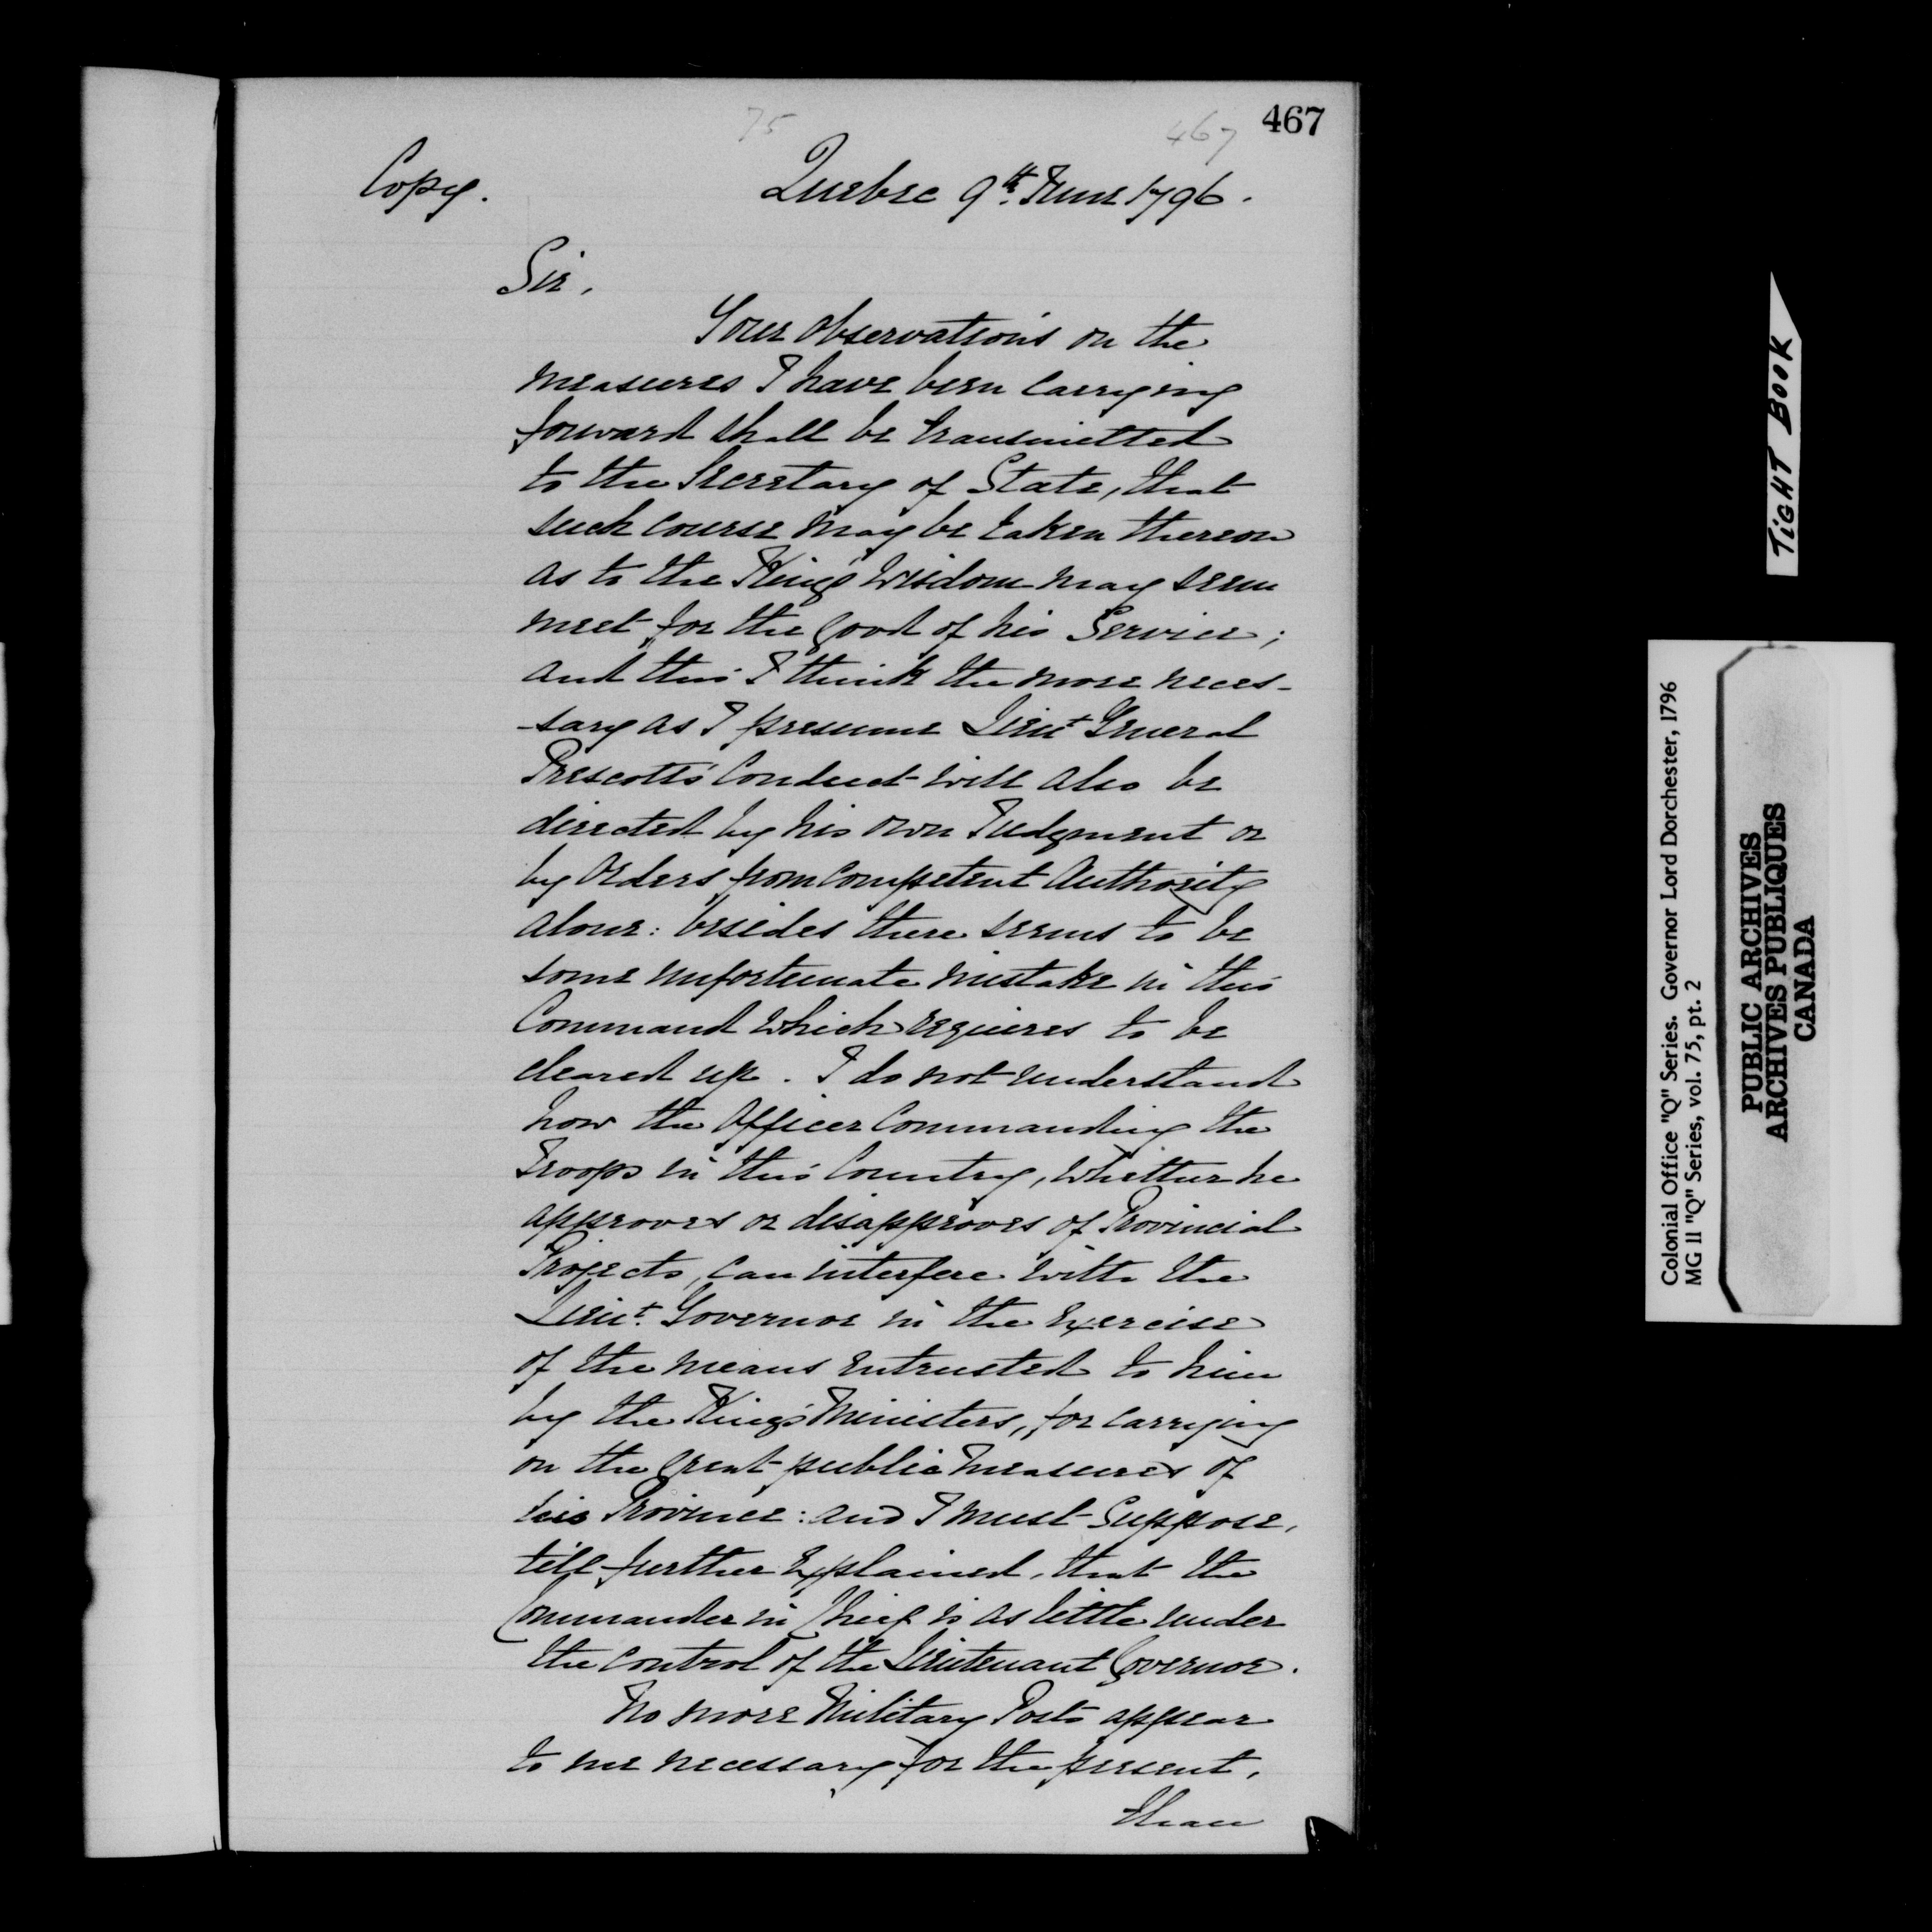 467
75
467
Copy.
Quebec 9th. June 1796.
Sir,
Your observations on the
measures I have been carrying
forward shall be transmitted
to the Secretary of State, that
such course may be taken thereon
as to the King's Wisdom may seem
meet for the good of his Service;
and this I think the more neces-
-sary as I presume Lieut General
Prescott's Conduct will also be
directed by his own Judgment or
by Orders from competent Authority
alone: besides there seems to be
some unfortunate mistake in this
Command which requires to be
cleared up. I do not understand
how the Officer Commanding the
Troops in this Country, whether he
approves or disapproves of Provincial
Projects, can interfere with the
Lieut. Governor in the Exercise
of the means entrusted to him
by the King's Ministers, for carrying
on the great public measures of
his Province: and I must suppose,
till further Explained, that the
Commander in Chief is as little under
the control of the Lieutenant Governor.
No more Military Posts appear
to me necessary for the present,
than
TiGHT BOOK
Colonial Office "Q" Series. Governor Lord Dorchester, 1796
MG II "Q" Series, vol. 75, pt. 2
PUBLIC ARCHIVES
ARCHIVES PUBLIQUES
CANADA